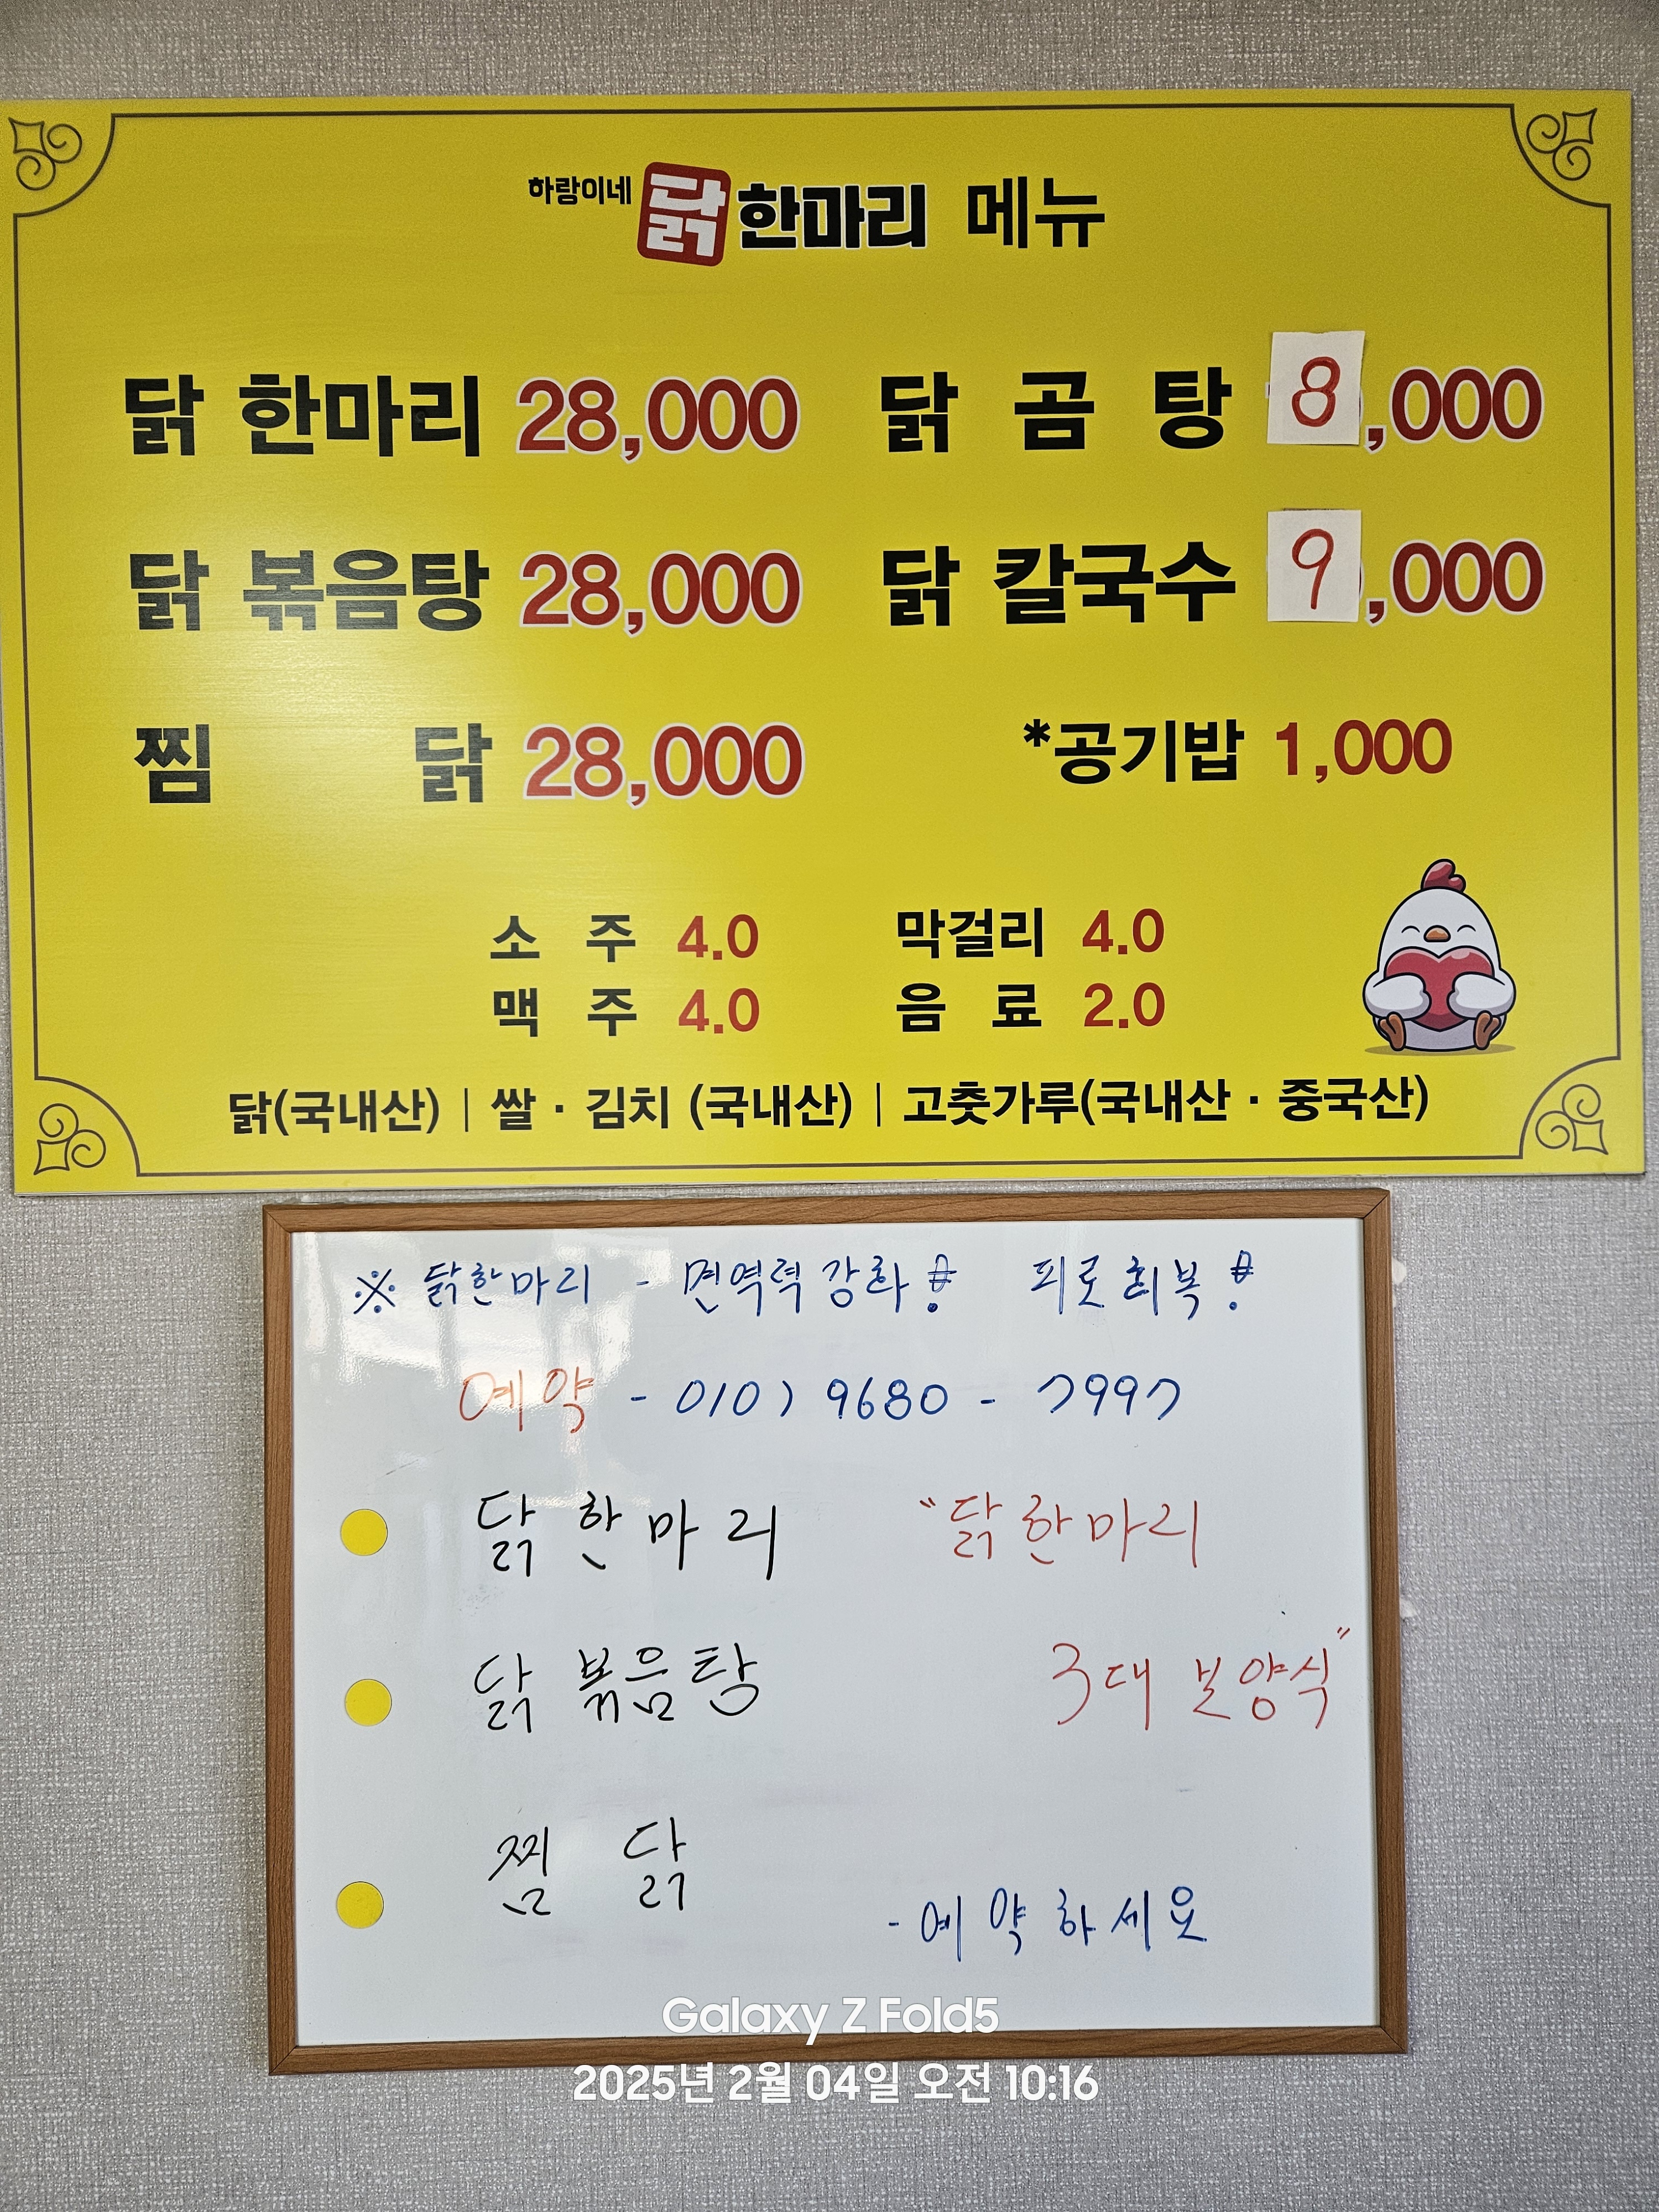 하랑이네 닭한마리 메뉴
닭 한마리 28,000 닭 곰 탕 8,000
닭 볶음탕 28,000 닭 칼국수 9,000
찜 닭 28,000 *공기밥 1,000
소 주 4.0 막걸리 4.0
맥 주 4.0 음 료 2.0
닭(국내산) | 쌀 · 김치 (국내산) | 고춧가루(국내산 · 중국산)
※ 닭한마리 - 면역력 강화! 피로회복!
예약 - 010) 9680 - 7997
닭 한마리 "닭한마리
닭 볶음탕 3대 보양식"
찜 닭
- 예약하세요
Galaxy Z Fold5
2025년 2월 04일 오전 10:16